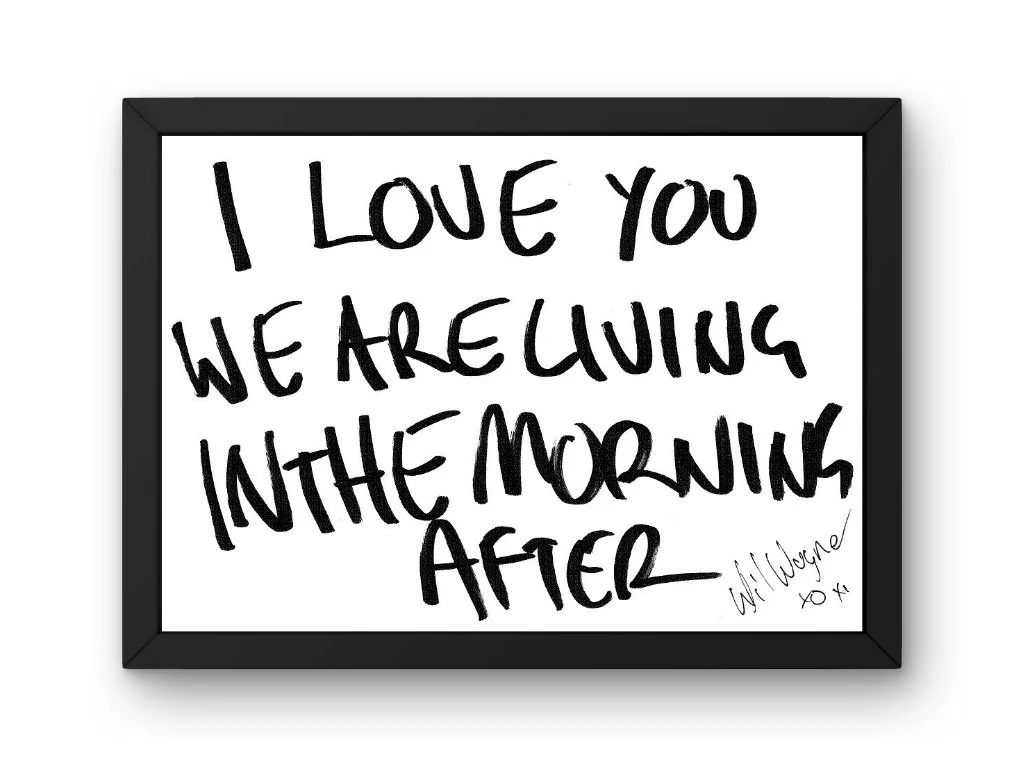 I LOVE YOU
WE ARE LIVING
IN THE MORNING
AFTER
Wil Wagner
xo xx